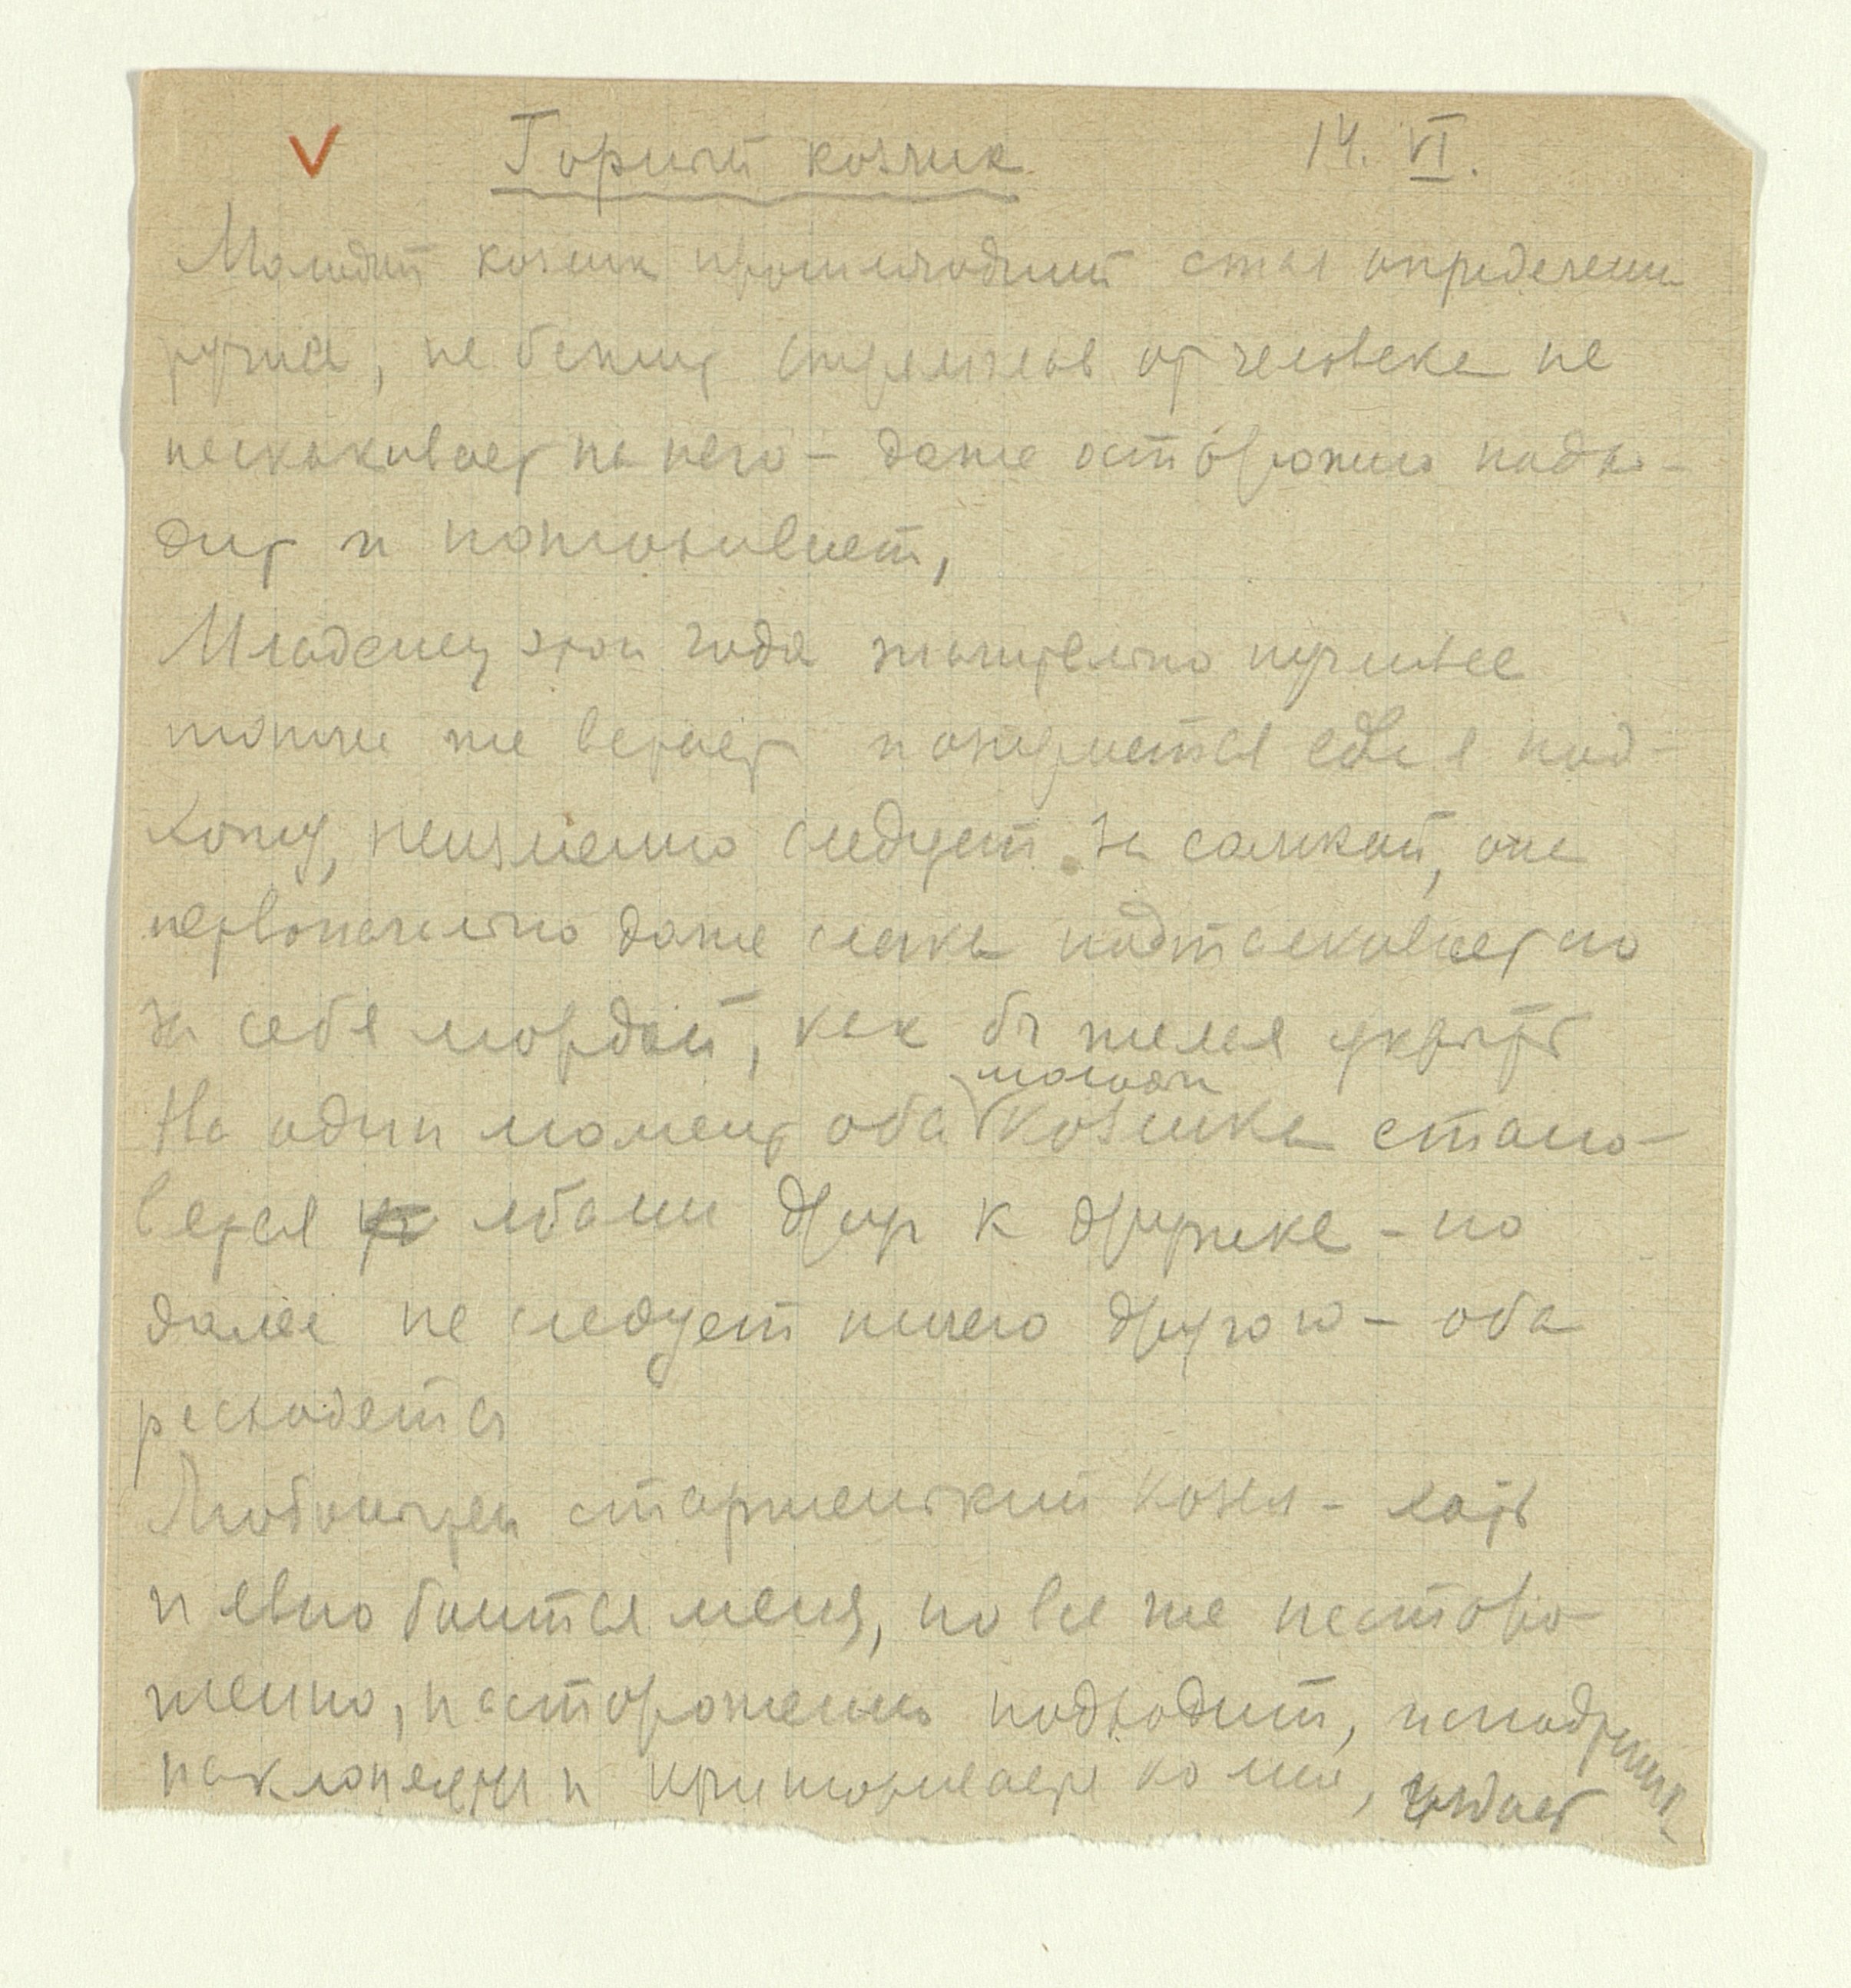 V Горный козлик 14. VI.
Молодой козлик прошлогодний стал определенно
ручной, не бежит стремглав от человека не
наскакивает на него – даже осторожно подхо-
дит и
Младенец этого года значительно пугливее
тотчас же вскакивает едва я под-
хожу, неизменно следует за самкой, она
первоначально даже слегка подталкивает его
за себя мордой, как бы желая укрыть
На один момент оба молодых козлика стано-
вятся лбами друг к дружке – но
далее не следует ничего другого – оба
расходятся
Любопытен старшенький козел – хоть
и явно боится меня, но все же насторо-
женно, настороженно подходит,
наклоняется и ко мне,